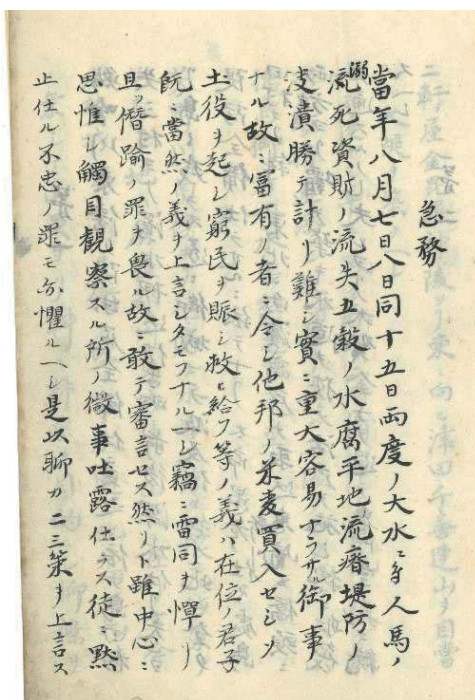 急務
當年八月七日八日同十五日両度ノ大水ニ付人馬ノ
溺流死資財ノ流失五穀ノ水腐平地流瘠堤防ノ
決潰勝テ計リ難シ實ニ重大容易ナラサル御事
ナル故ニ富有ノ者ニ令シ他邦ノ米麦買入セシメ
土役ヲ起シ窮民ヲ賑シ救ヒ給フ等ノ義ハ在位ノ君子
既ニ當然ノ義ヲ上言シタモフナルヘシ竊ニ雷同ヲ憚リ
且ツ僭踰ノ罪ヲ畏ル故ニ敢テ審言セス然リト雖中心ニ
思惟シ觸目観察スル所ノ微事吐露仕ラス徒ニ黙
止仕ル不忠ノ罪モ亦懼ルヘシ是以聊カ二三策ヲ上言ス